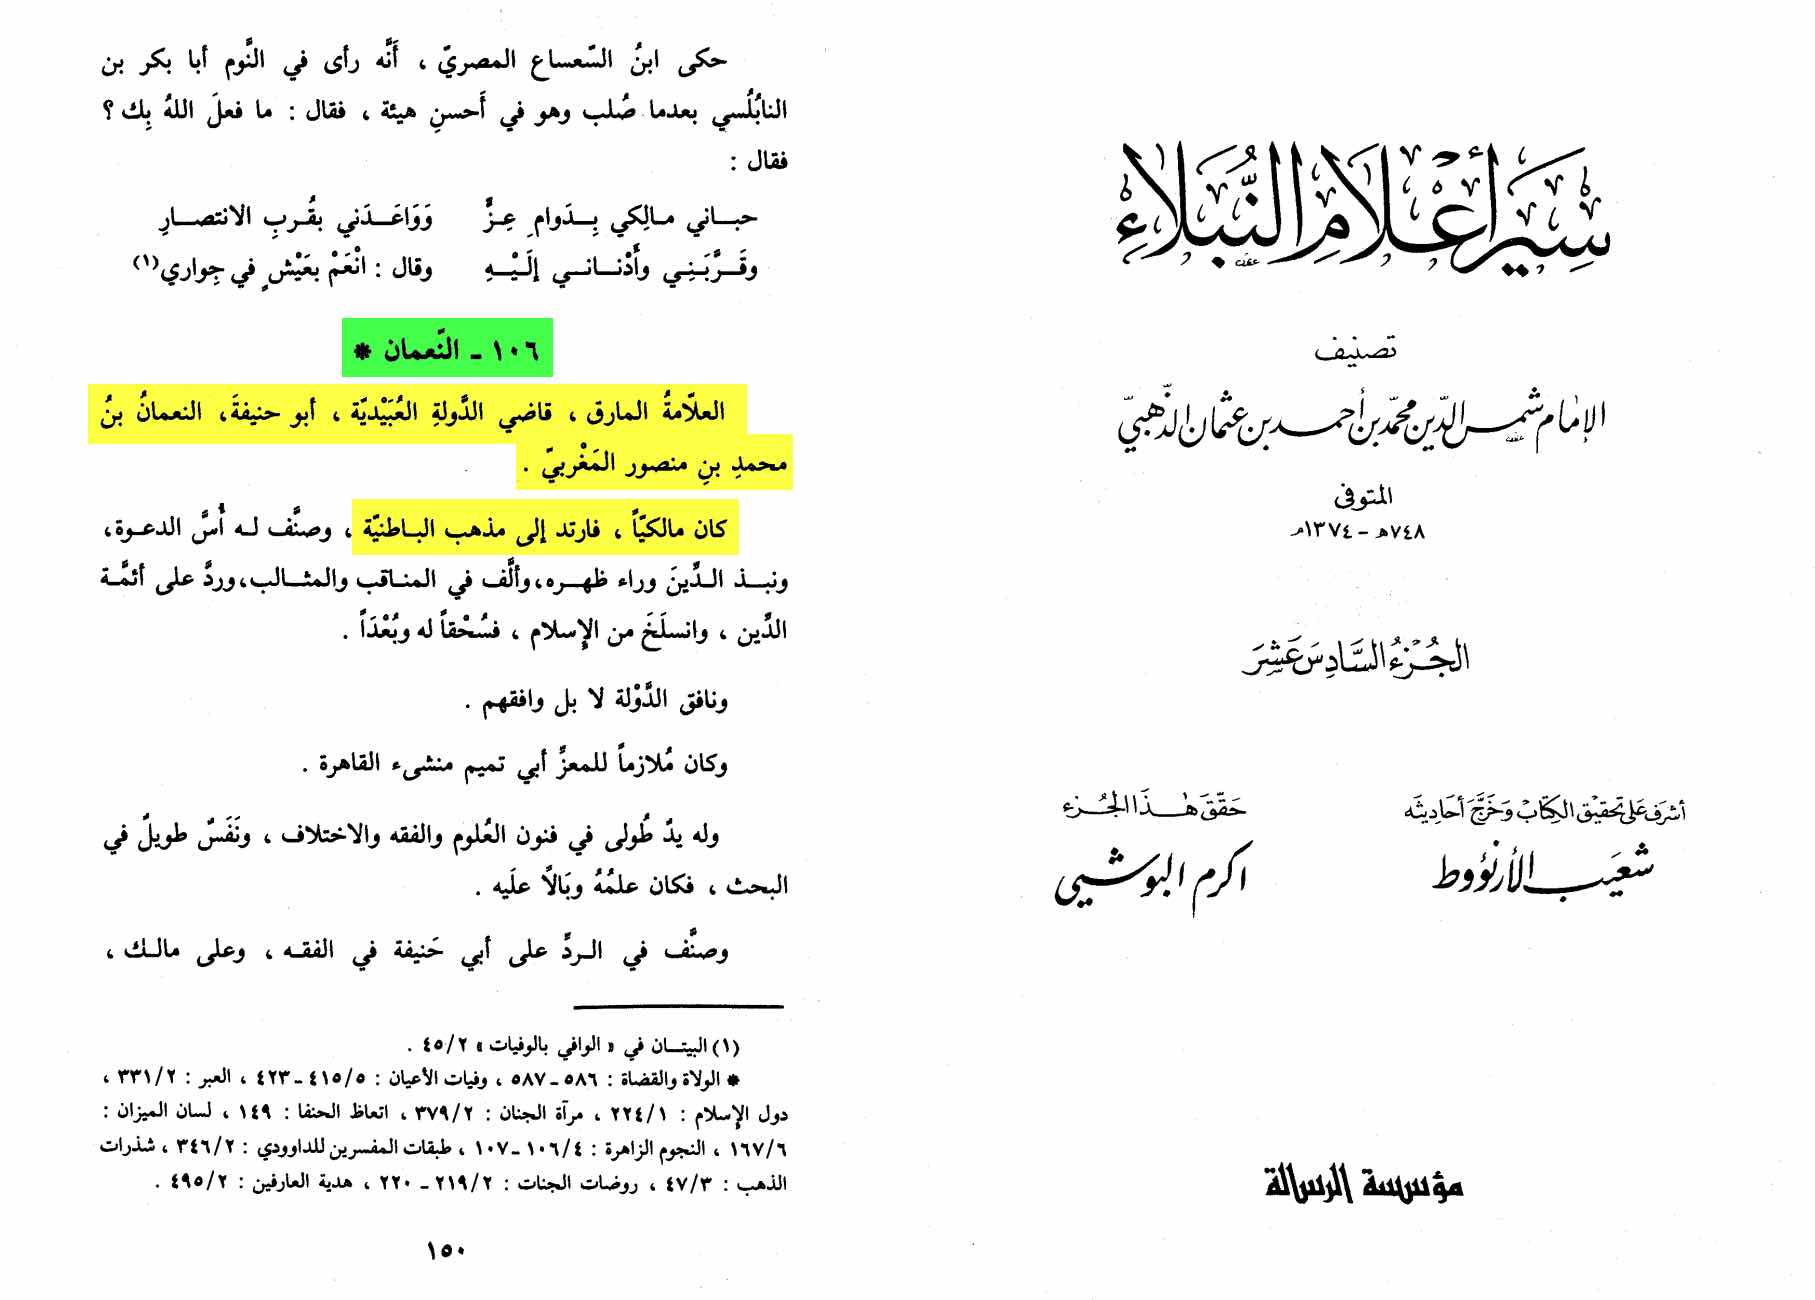 سير أعلام النبلاء
تصنيف
الإمام شمس الدين محمد بن أحمد بن عثمان الذهبي
المتوفى
٧٤٨هـ - ١٣٧٤م
الجزء السادس عشر
أشرف على تحقيق الكتاب وخرج أحاديثه
شعيب الأرنؤوط
حقق هذا الجزء
اكرم البوشي
مؤسسة الرسالة
حكى ابنُ السّعساع المصريّ ، أَنَّه رأى في النَّوم أبا بكر بن
النابُلُسي بعدما صُلب وهو في أَحسنِ هيئة ، فقال : ما فعلَ اللهُ بِك ؟
فقال :
حباني مالِكي بِدَوامِ عِزٍّ وَوَاعَدَني بقُربِ الانتصارِ
وقَرَّبَنِي وأَدْناني إلَيْهِ وقال : انْعَمْ بعَيْشٍ في جِواري(١)
١٠٦ - النَّعمان *
العلّامةُ المارق ، قاضي الدَّولةِ العُبَيْديّة ، أبو حنيفةَ، النعمانُ بنُ
محمدِ بنِ منصور المَغْربيّ .
كان مالكيّاً ، فارتد إلى مذهب الباطنيّة ، وصنَّف له أُسَّ الدعوة،
ونبذ الدِّينَ وراء ظهره،وألَّف في المناقب والمثالب،وردَّ على أئمَّة
الدِّين ، وانسلَخَ من الإِسلام ، فسُحْقاً له وبُعْدَاً .
ونافق الدَّوْلة لا بل وافقهم .
وكان مُلازماً للمعزِّ أبي تميم منشىء القاهرة .
وله يدٌ طُولى في فنون العُلوم والفقه والاختلاف ، ونَفَسٌ طويلٌ في
البحث ، فكان علمُهُ وبَالاً علَيه .
وصنَّف في الردِّ على أبي حَنيفة في الفقه ، وعلى مالك ،
(١) البيتان في « الوافي بالوفيات » ٤٥/٢ .
* الولاة والقضاة : ٥٨٦ - ٥٨٧ ، وفيات الأعيان : ٤١٥/٥ - ٤٢٣ ، العبر : ٣٣١/٢ ،
دول الإِسلام : ٢٢٤/١ ، مرآة الجنان : ٣٧٩/٢ ، اتعاظ الحنفا : ١٤٩ ، لسان الميزان :
١٦٧/٦ ، النجوم الزاهرة : ١٠٦/٤ - ١٠٧ ، طبقات المفسرين للداوودي : ٣٤٦/٢ ، شذرات
الذهب : ٤٧/٣ ، روضات الجنات : ٢١٩/٢ - ٢٢٠ ، هدية العارفين : ٤٩٥/٢ .
١٥٠